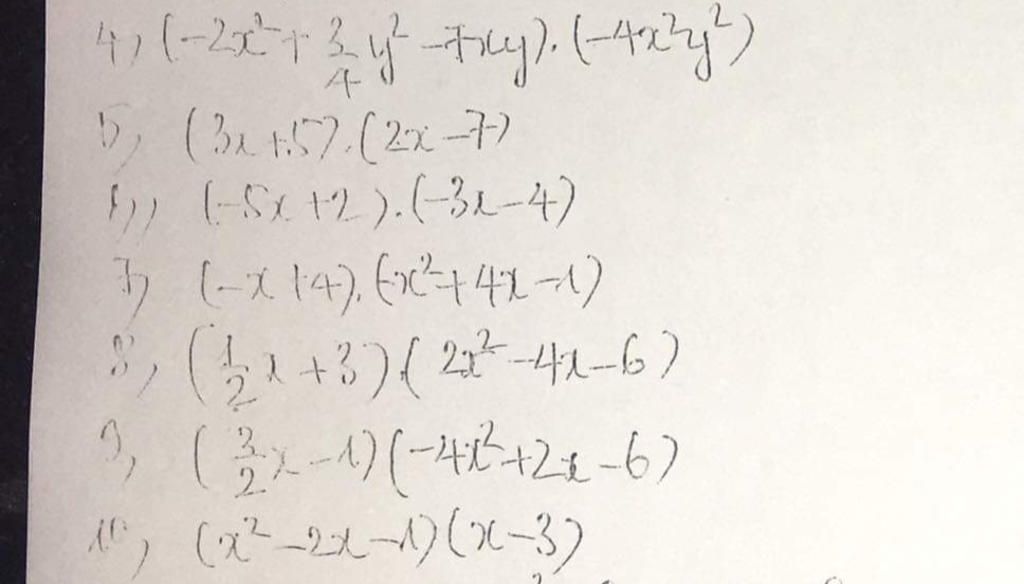 4, (-2x² + 3/4 y² - 7xy).(-4x²y²)
5, (3x+5).(2x-7)
6,, (-5x+2).(-3x-4)
7, (-x+4).(-x²+4x-1)
8, (1/2 x+3).(2x²-4x-6)
9, (3/2 x-1)(-4x²+2x-6)
10, (x²-2x-1)(x-3)